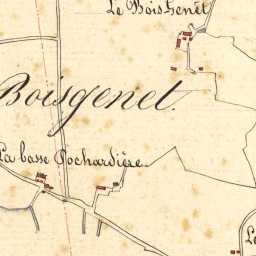 Le Bois Genêt
Boisgenet.
La basse Pochardière
Le